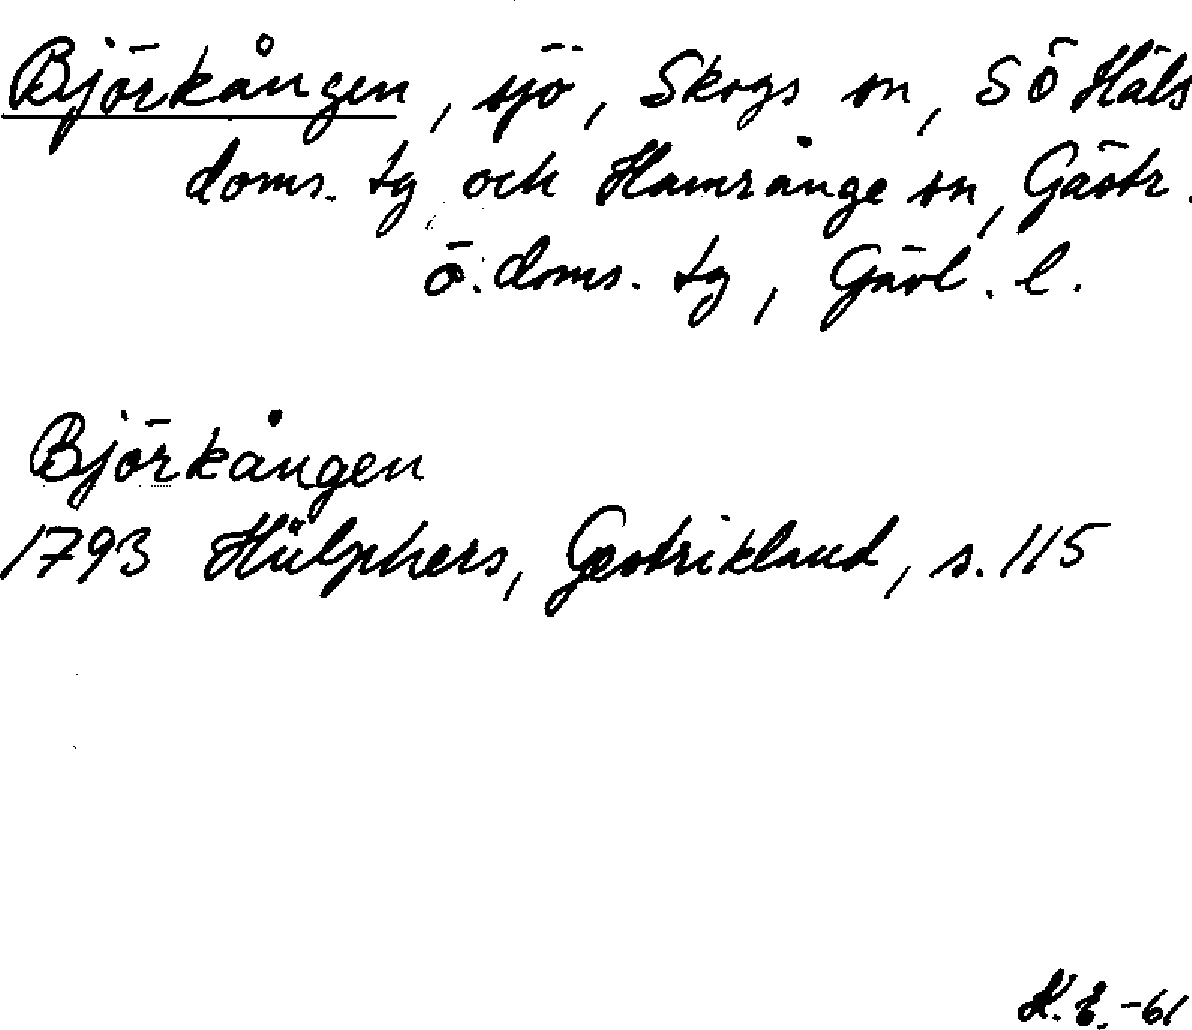 Björkången, sjö, Skogs sn, SÖ Häls
doms. tg och Hamrånge sn, Gästr.
ö. doms. tg, Gävl. l.
Björkången
1793 Hülphers, Gestrikland, s. 115
K. E. -61